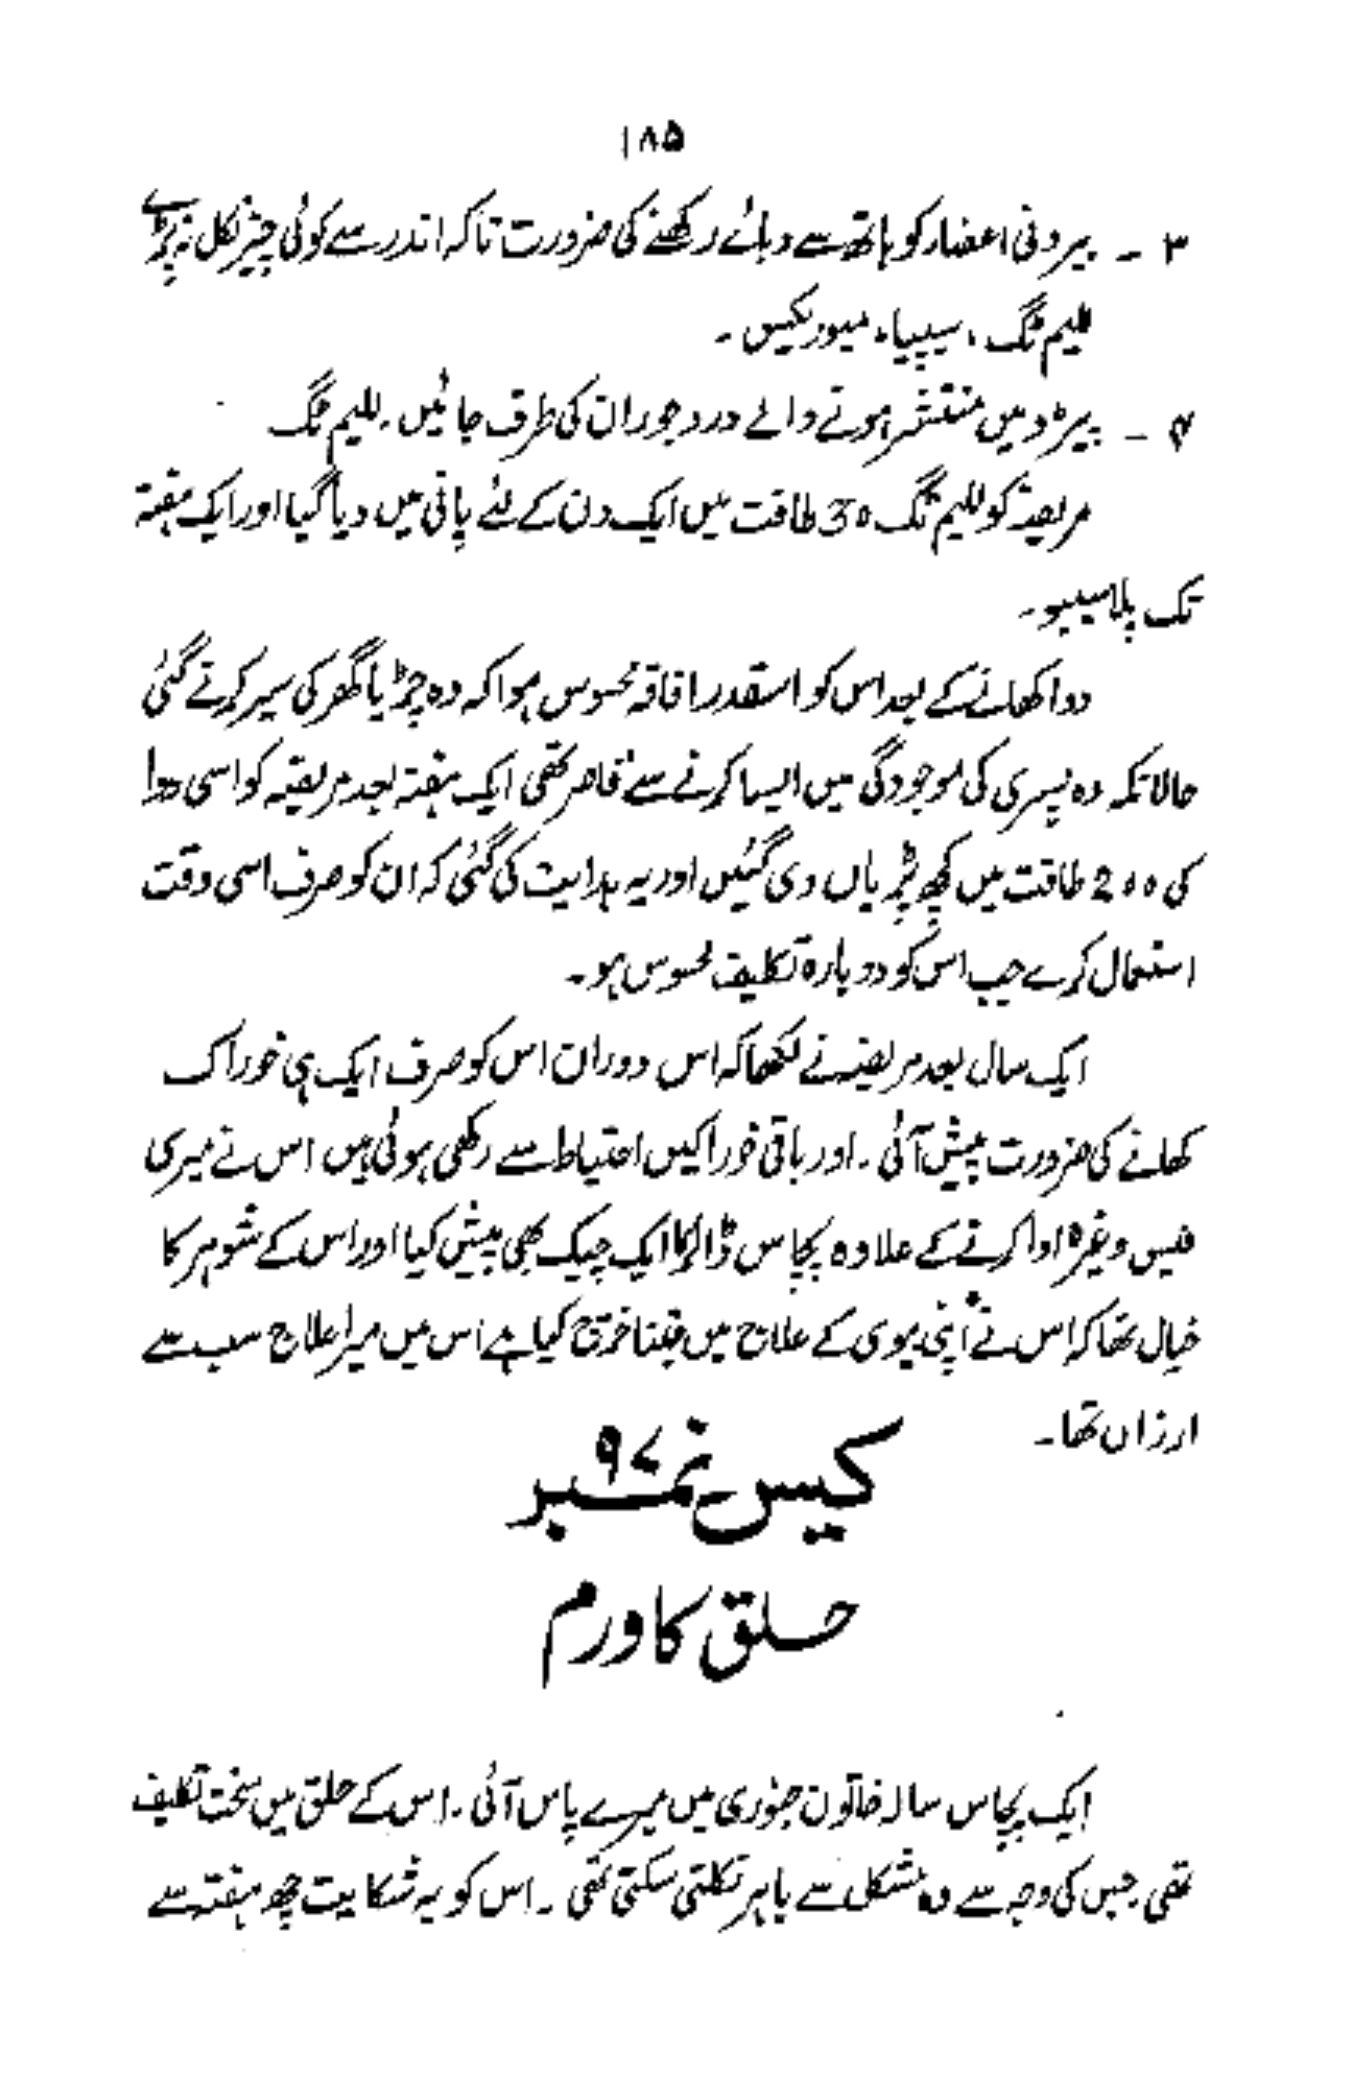 ۱۸۵
۳ ۔ بیرونی اعضاء کو ہاتھ سے دبائے رکھنے کی ضرورت تاکہ اندر سے کوئی چیز نکل نہ پڑے
للیم ٹگ ، سیپیا، میوریکس ۔
۴ ۔ پیڑو میں منتشر ہونے والے درد جو ران کی طرف جائیں ۔ للیم ٹگ
مریضہ کو للیم ٹگ 30 طاقت میں ایک دن کے لئے پانی میں دیا گیا اور ایک ہفتہ
تک پلاسیبو ۔
دوا کھانے کے بعد اس کو اسقدر افاقہ محسوس ہوا کہ وہ چڑیا گھر کی سیر کرنے گئی
حالانکہ وہ پسری کی موجودگی میں ایسا کرنے سے قاصر تھی ایک ہفتہ بعد مریضہ کو اسی دوا
کی 200 طاقت میں کچھ پڑیاں دی گئیں اور یہ ہدایت کی گئی کہ ان کو صرف اسی وقت
استعمال کرے جب اس کو دوبارہ تکلیف محسوس ہو ۔
ایک سال بعد مریضہ نے لکھا کہ اس دوران اس کو صرف ایک ہی خوراک
کھانے کی ضرورت پیش آئی ۔ اور باقی خوراکیں احتیاط سے رکھی ہوئی ہیں اس نے میری
فیس وغیرہ ادا کرنے کے علاوہ پچاس ڈالر کا ایک چیک بھی پیش کیا اور اس کے شوہر کا
خیال تھا کہ اس نے اپنی بیوی کے علاج میں جتنا خرچ کیا ہے اس میں میرا علاج سب سے
ارزاں تھا ۔
کیس نمبر ۹۷
حلق کا ورم
ایک پچاس سالہ خاتون جنوری میں میرے پاس آئی ۔ اس کے حلق میں سخت تکلیف
تھی جس کی وجہ سے وہ مشکل سے باہر نکلتی سکتی تھی ۔ اس کو یہ شکایت چھ ہفتہ سے